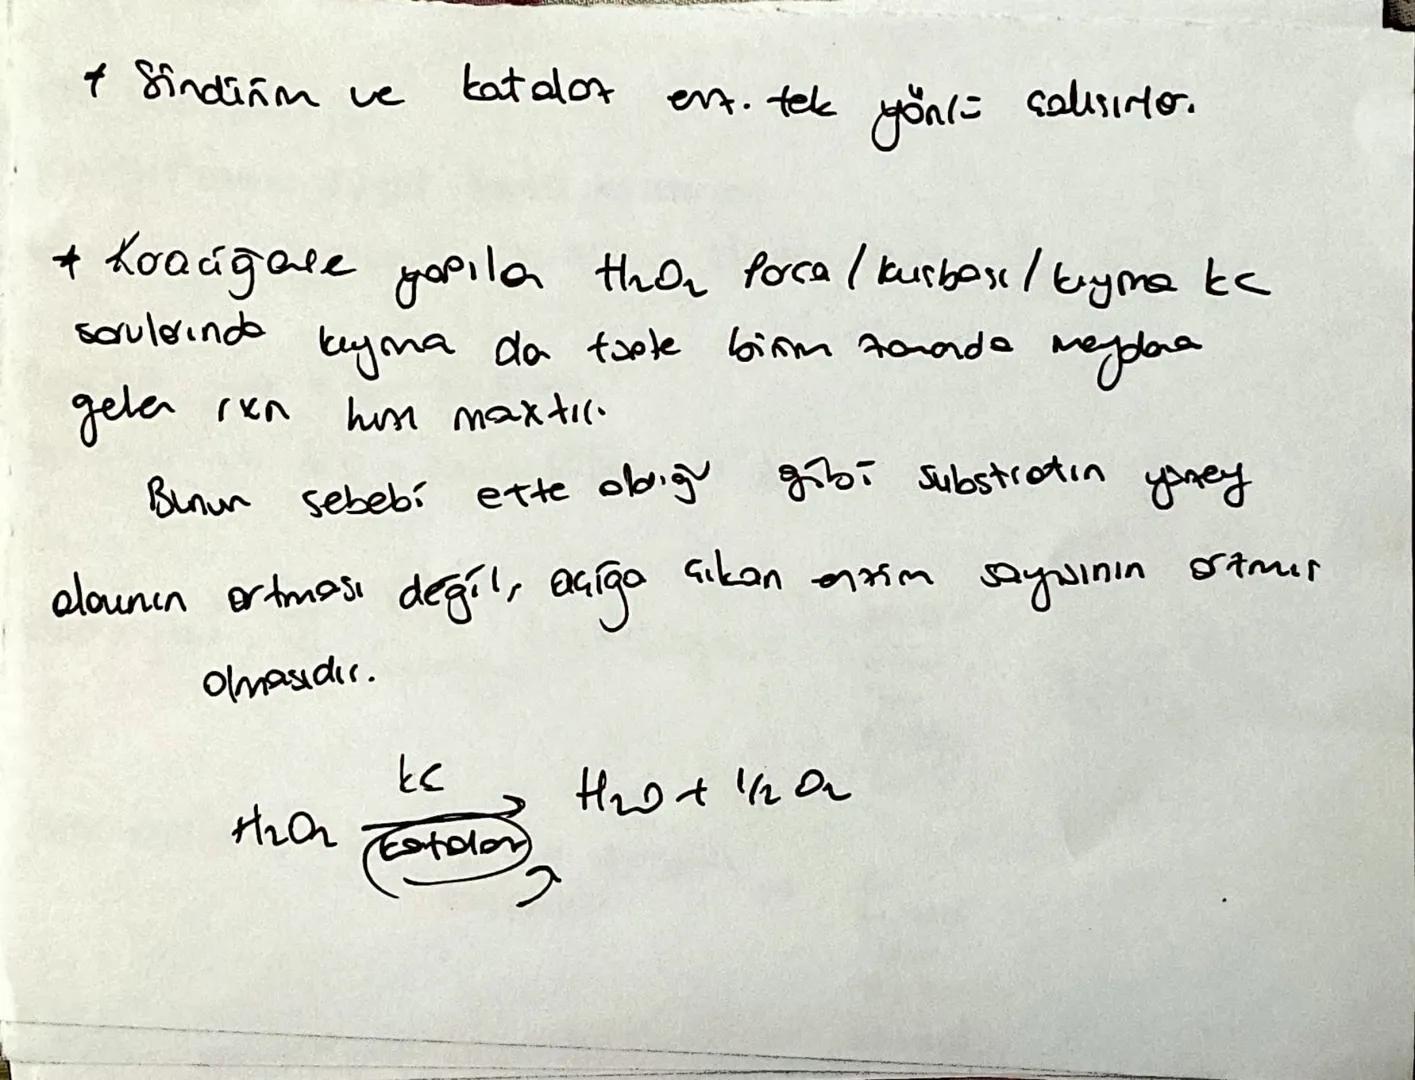 * Sindirim ve katalaz enz. tek yönlü çalışırlar.
* Karaciğerle yapılan H₂O₂ Parça / kuşbaşı / kıyma kc
sorularında kıyma da tüpte birim zamanda meydana
gelen rxn hızı maxtır.
Bunun sebebi ette olduğu gibi substratın yüzey
alanının artması değil, açığa çıkan enzim sayısının artmış
olmasıdır.
kc
H₂O₂ → H₂O + 1/2 O₂
katalaz